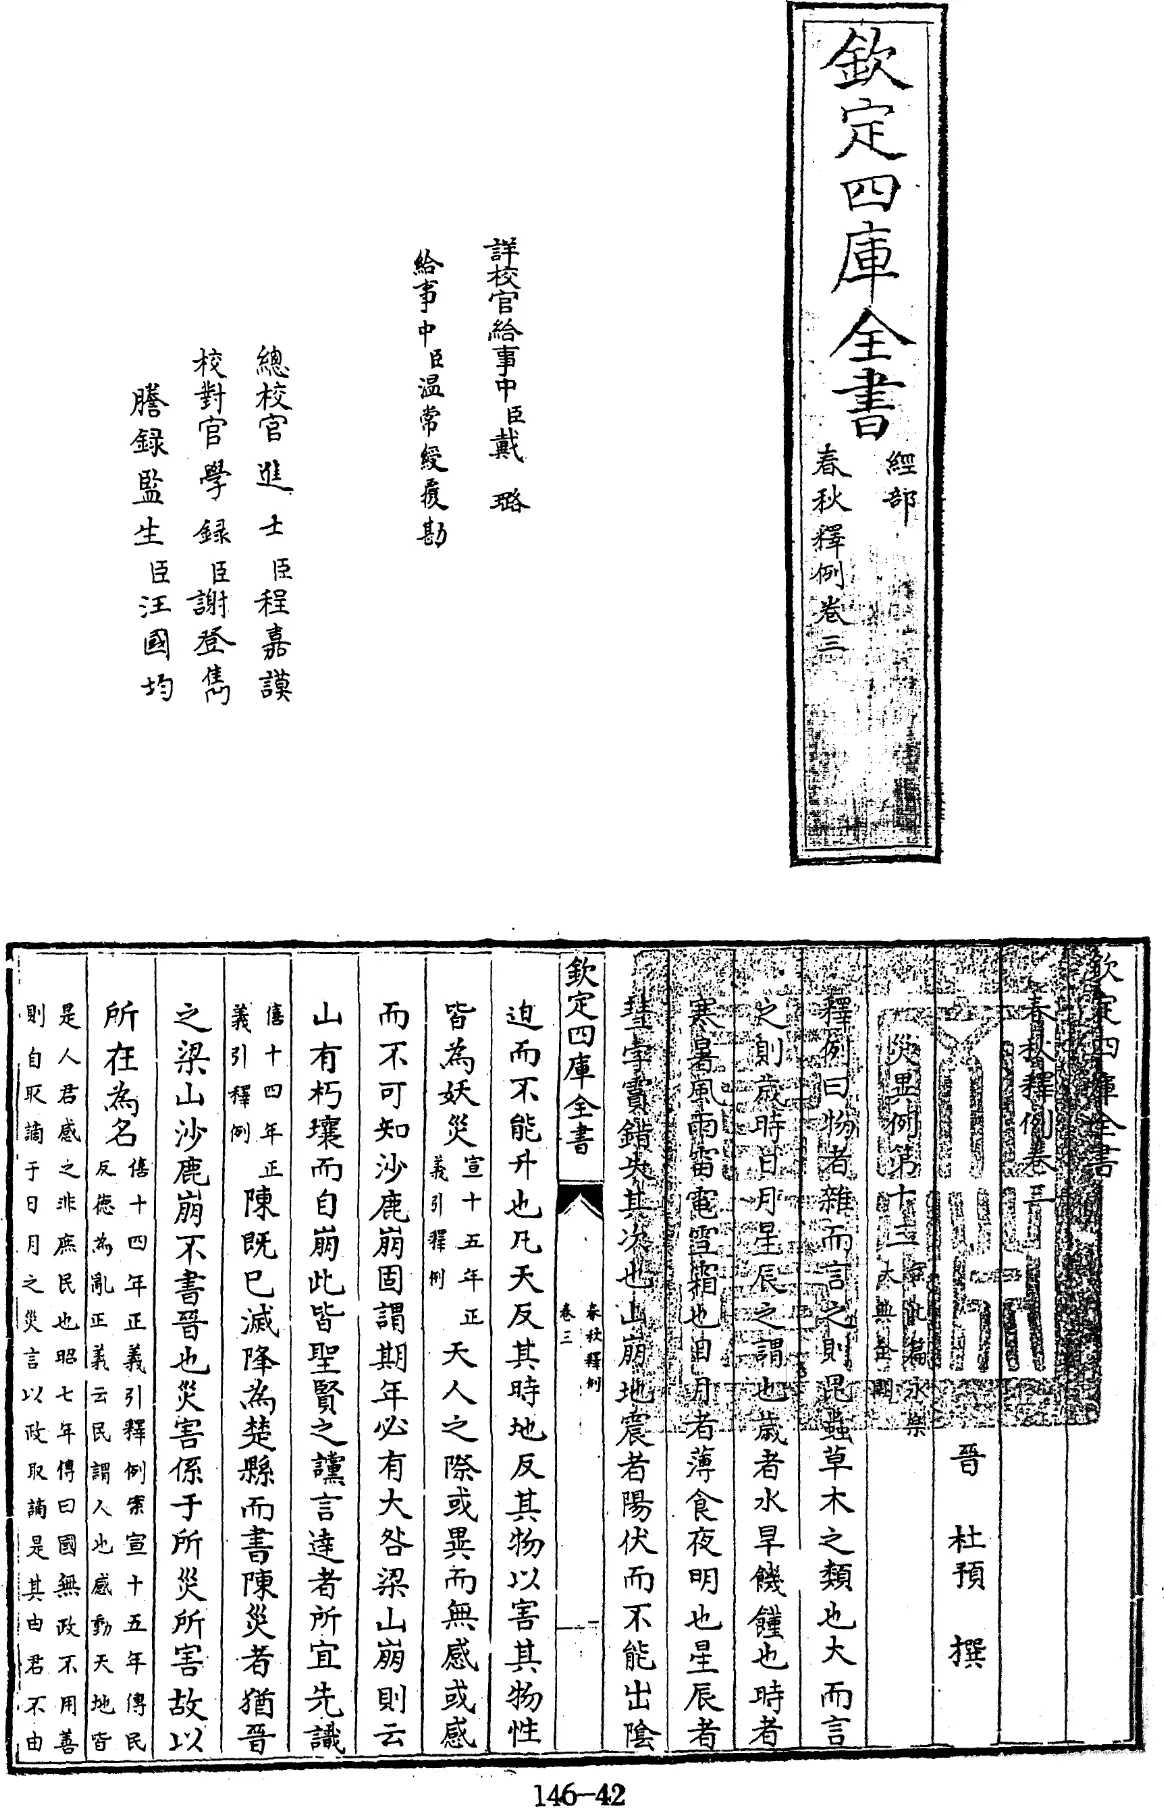 欽定四庫全書
經部
春秋釋例卷三
詳校官給事中臣戴璐
給事中臣温常綬覆勘
總校官進士臣程嘉謨
校對官學録臣謝登雋
謄録監生臣汪國均
欽定四庫全書
春秋釋例卷三
晉 杜預 撰
災異例第十二
案此篇永樂
大典全闕
釋例曰物者雜而言之則昆蟲草木之類也大而言
之則歲時日月星辰之謂也歲者水旱饑饉也時者
寒暑風雨雷電雪霜也日月者薄食夜明也星辰者
彗孛霣錯失其次也山崩地震者陽伏而不能出陰
欽定四庫全書
春秋釋例
卷三
二
迫而不能升也凡天反其時地反其物以害其物性
皆為妖災宣十五年正義引釋例天人之際或異而無感或感
而不可知沙鹿崩固謂期年必有大咎梁山崩則云
山有朽壤而自崩此皆聖賢之讜言達者所宜先識
僖十四年正義引釋例陳既已滅降為楚縣而書陳災者猶晉
之梁山沙鹿崩不書晉也災害係于所災所害故以
所在為名僖十四年正義引釋例案宣十五年傳民
反德為亂正義云民謂人也感動天地皆
是人君感之非庶民也昭七年傳曰國無政不用善
則自取謫于日月之災言以政取謫是其由君不由
146-42